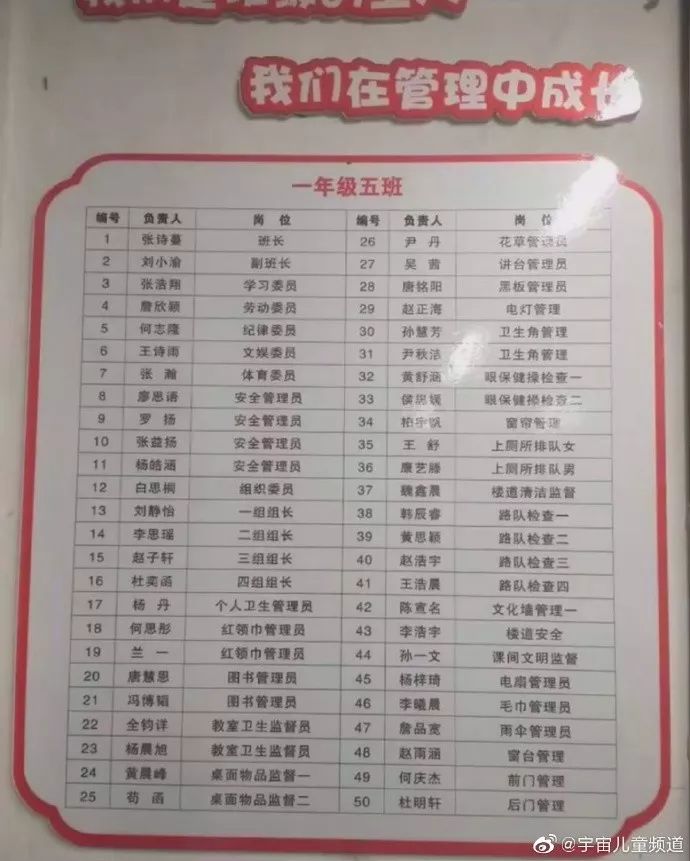 我们在管理中成长
一年级五班
编号 负责人 岗 位 编号 负责人 岗 位
1 张诗蔓 班长 26 尹 丹 花草管理员
2 刘小渝 副班长 27 吴 茜 讲台管理员
3 张浩翔 学习委员 28 唐铭阳 黑板管理员
4 詹欣颖 劳动委员 29 赵正海 电灯管理
5 何志隆 纪律委员 30 孙慧芳 卫生角管理
6 王诗雨 文娱委员 31 尹秋洁 卫生角管理
7 张 瀚 体育委员 32 黄舒涵 眼保健操检查一
8 廖思语 安全管理员 33 侯思媛 眼保健操检查二
9 罗 扬 安全管理员 34 柏宇帆 窗帘管理
10 张益扬 安全管理员 35 王 舒 上厕所排队女
11 杨皓涵 安全管理员 36 康艺滕 上厕所排队男
12 白思桐 组织委员 37 魏鑫晨 楼道清洁监督
13 刘静怡 一组组长 38 韩辰睿 路队检查一
14 李思瑶 二组组长 39 黄思颖 路队检查二
15 赵子轩 三组组长 40 赵浩宇 路队检查三
16 杜奕函 四组组长 41 王浩晨 路队检查四
17 杨 丹 个人卫生管理员 42 陈宣名 文化墙管理一
18 何思彤 红领巾管理员 43 李浩宇 楼道安全
19 兰 一 红领巾管理员 44 孙一文 课间文明监督
20 唐慧恩 图书管理员 45 杨梓琦 电扇管理员
21 冯博韬 图书管理员 46 李曦晨 毛巾管理员
22 全钧详 教室卫生监督员 47 詹品宽 雨伞管理员
23 杨晨旭 教室卫生监督员 48 赵雨涵 窗台管理
24 黄晨峰 桌面物品监督一 49 何庆杰 前门管理
25 苟 函 桌面物品监督二 50 杜明轩 后门管理
@宇宙儿童频道